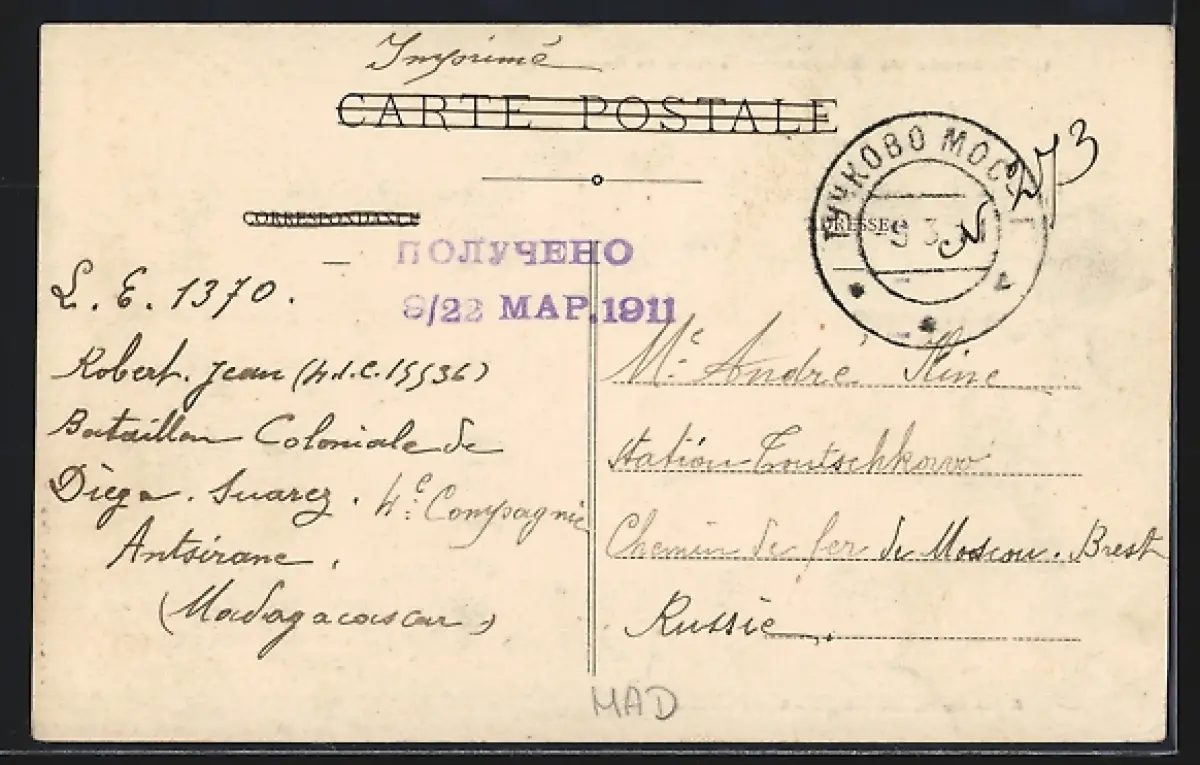 Imprimé
CARTE POSTALE
CORRESPONDANCE
ADRESSE
ТУЧКОВО МОСК. Г.
273
ПОЛУЧЕНО
9/22 МАР.1911
L. E. 1370.
Robert. Jean (4.I.C. 15536)
Bataillon Coloniale de
Diego. Suarez. 4e Compagnie
Antsirane.
(Madagacascar)
Mr. André Kine
Station Toutschkowo
Chemin de fer de Moscou. Brest
Russie.
MAD